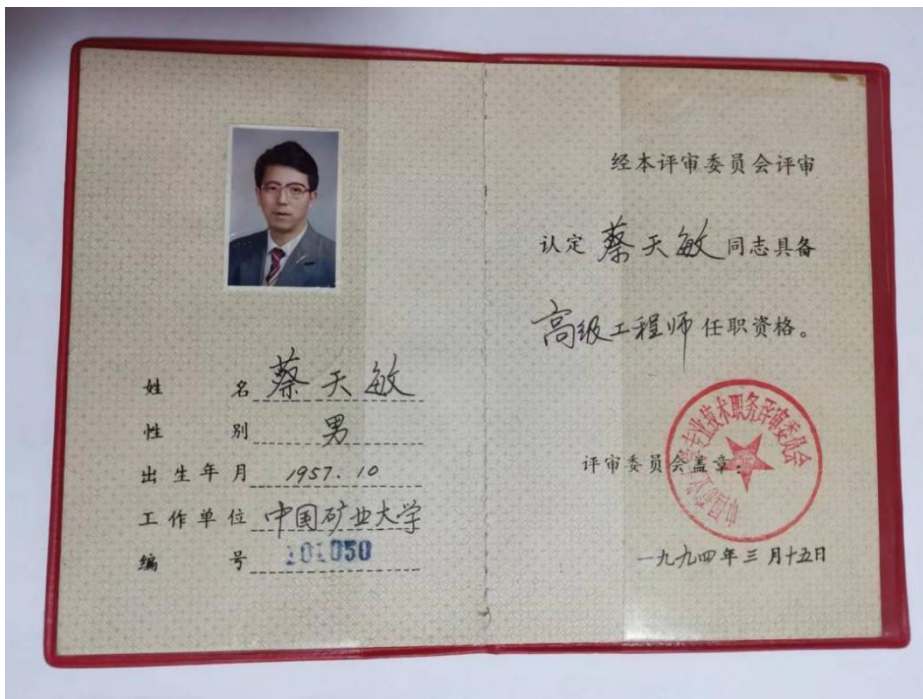 姓 名 蔡天敏
性 别 男
出生年月 1957.10
工作单位 中国矿业大学
编 号 101050
经本评审委员会评审
认定 蔡天敏 同志具备
高级工程师 任职资格。
评审委员会盖章:
专业技术职务评审委员会
一九九四年三月十五日